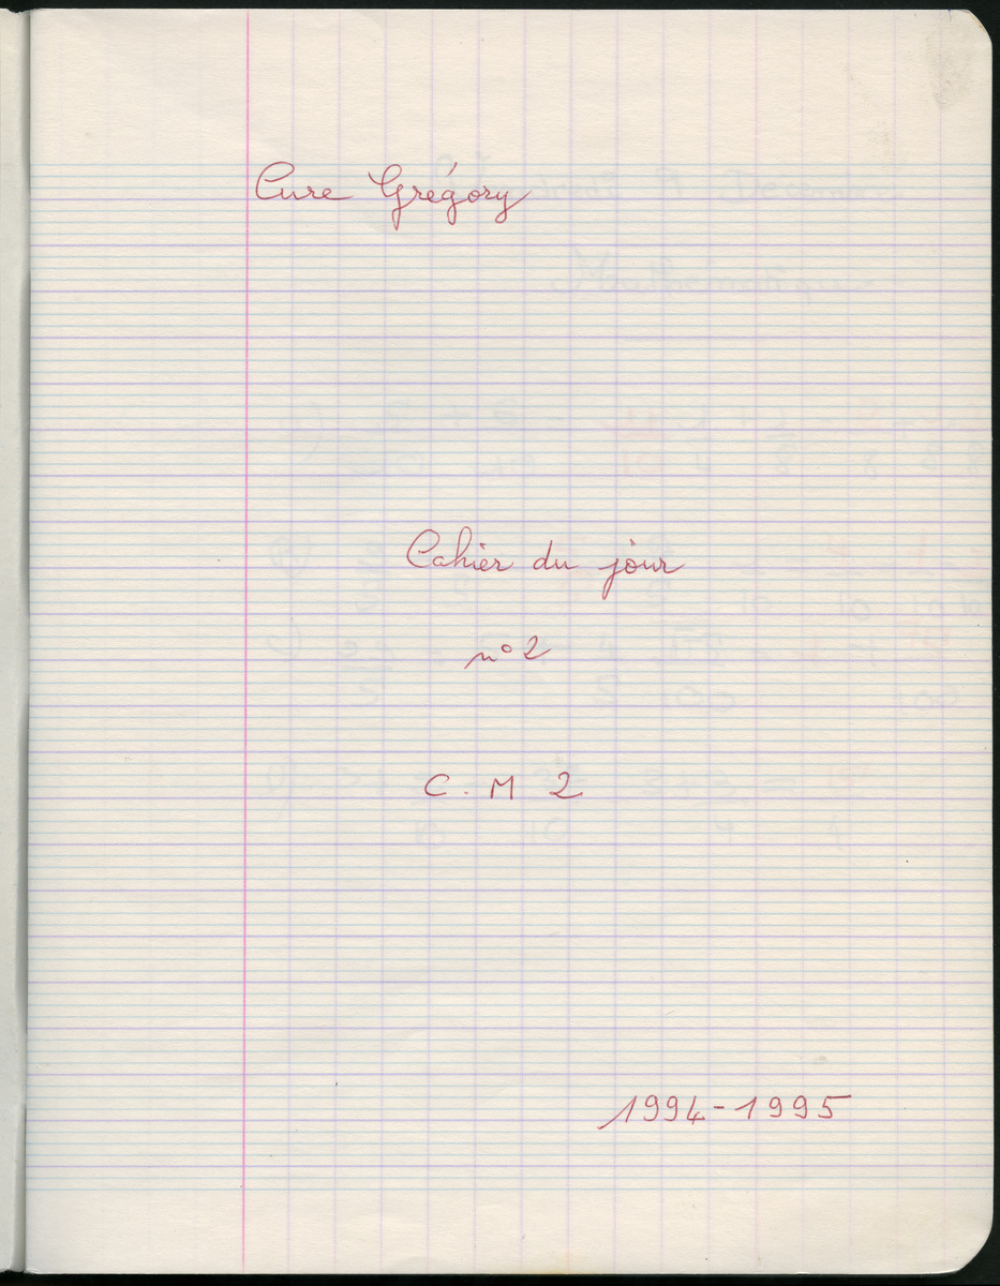 Cure Grégory
Cahier du jour
n° 2
C. M 2
1994-1995